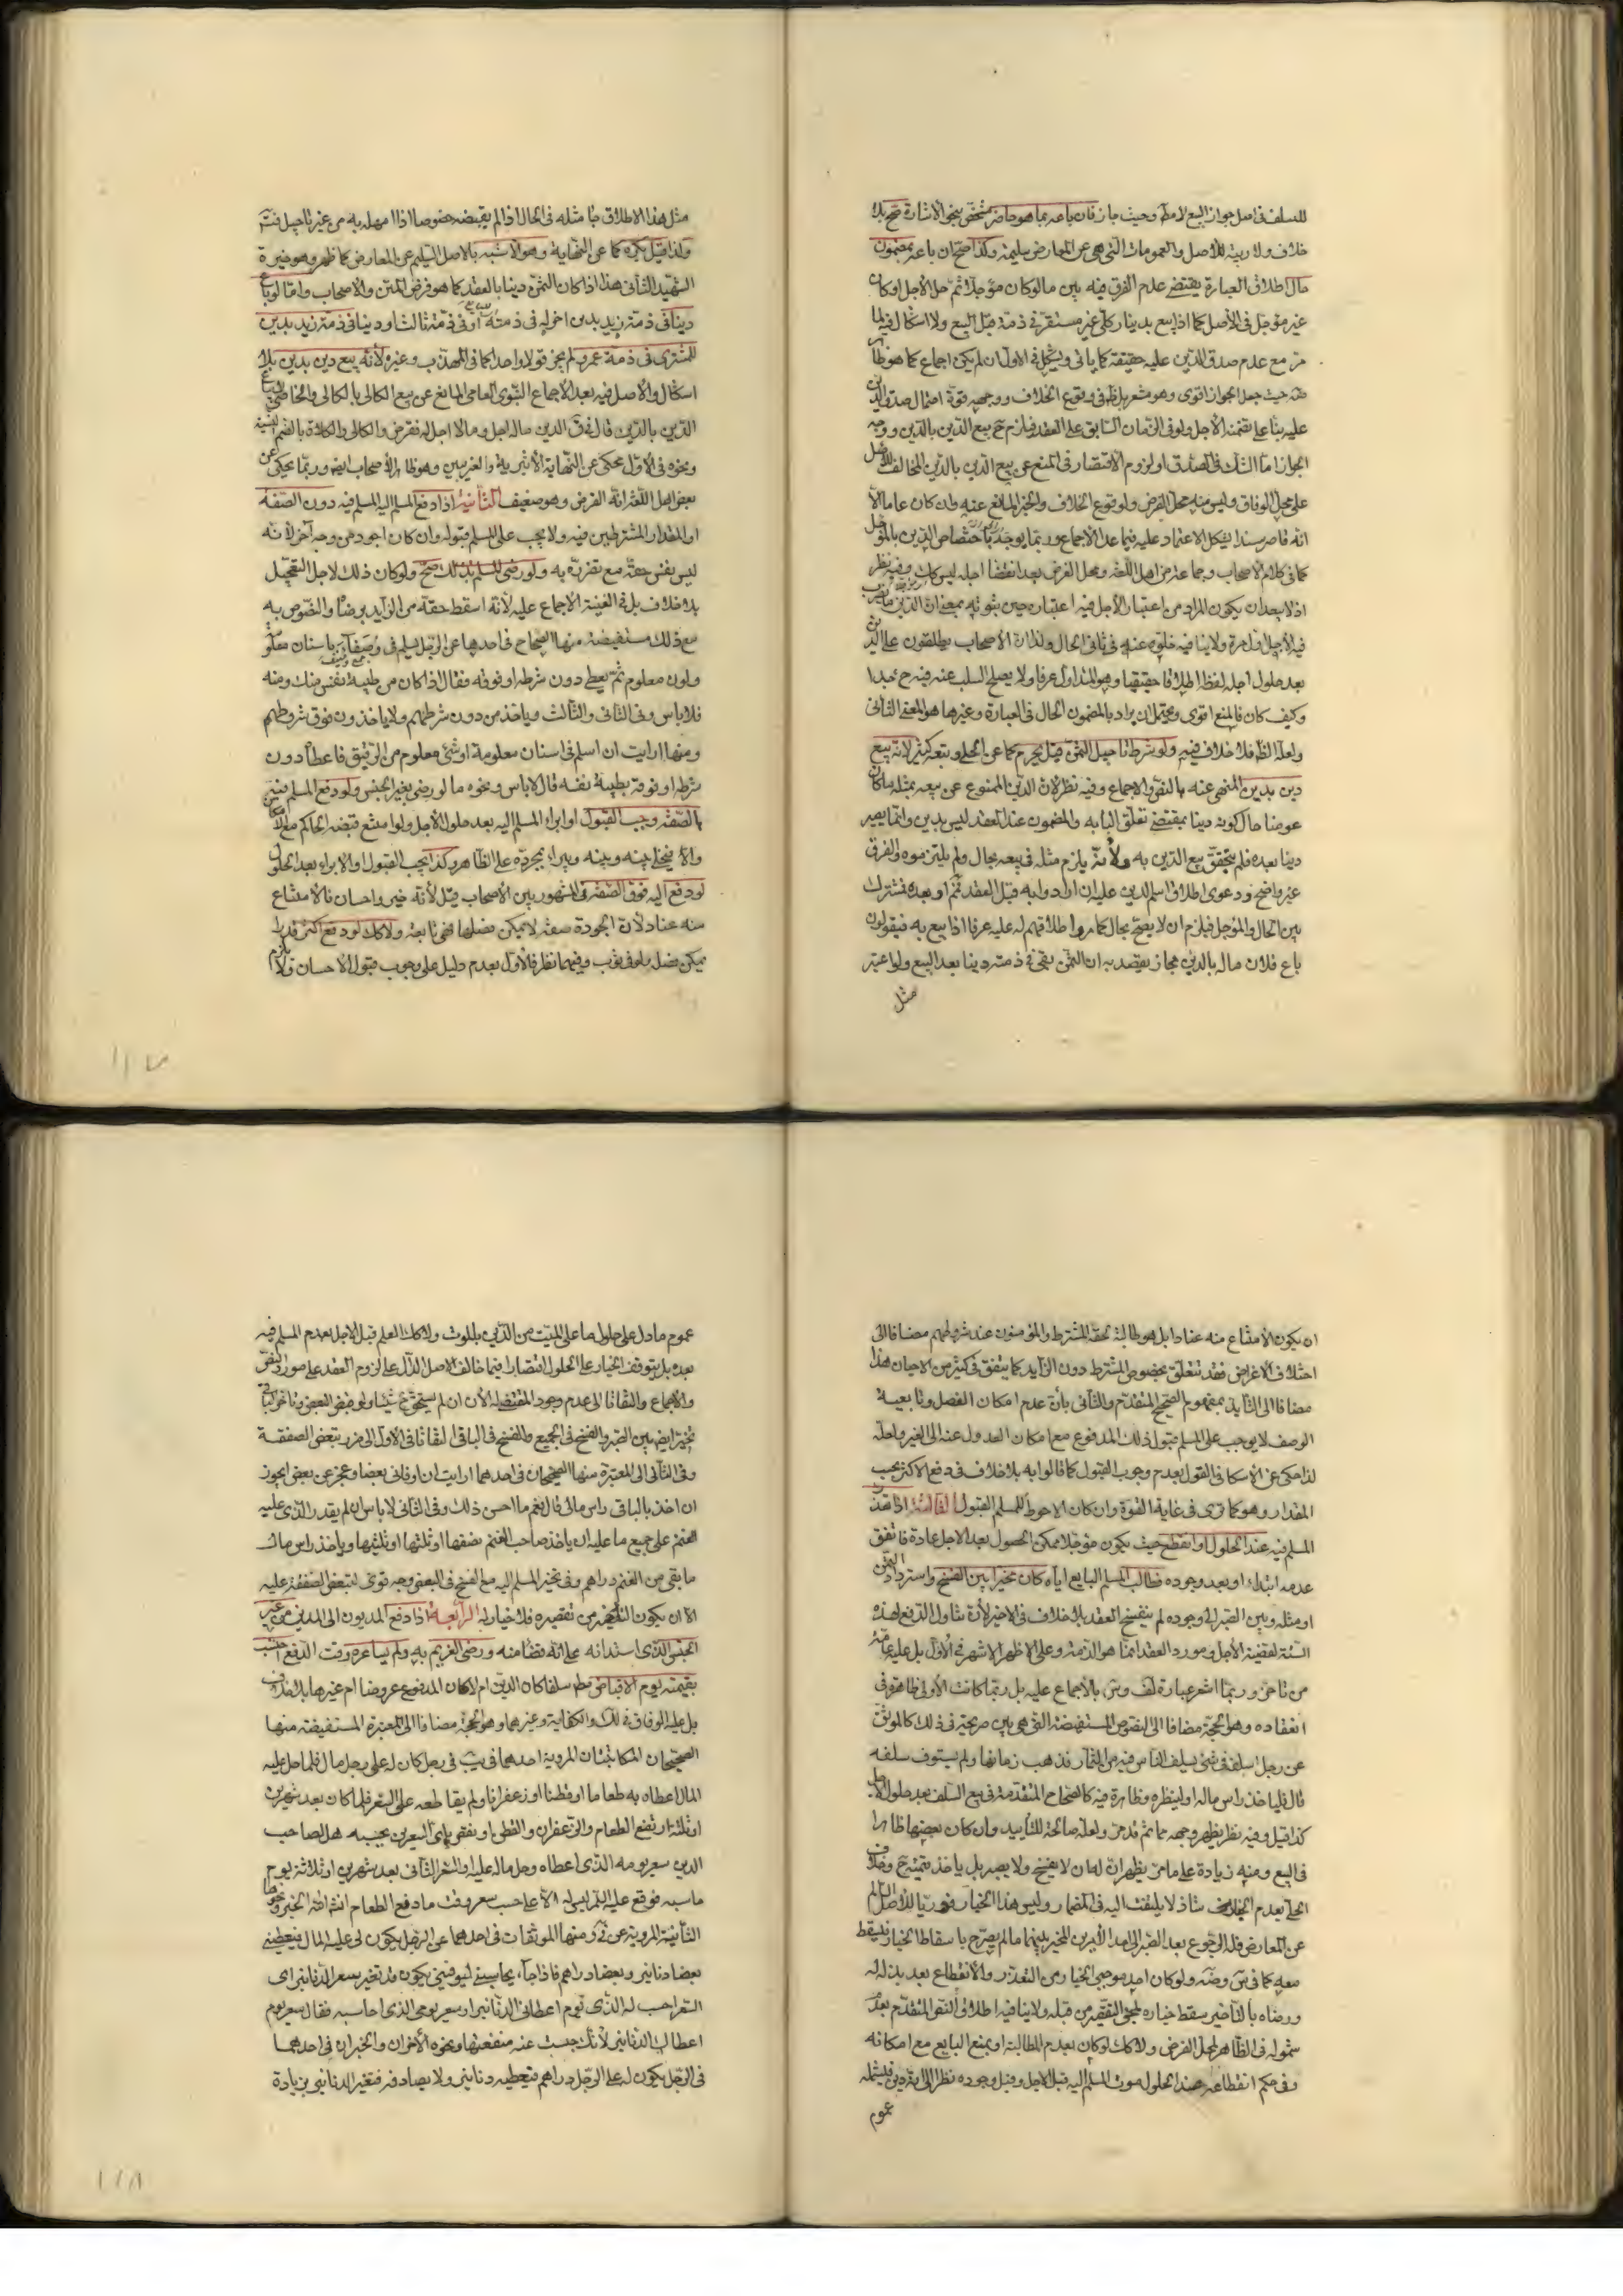 للسلف في اصل جواز البيع لا مطلقا وحيث جاز فان باعه بما هو حاضر مشخص بنحو الاشارة صح بلا
خلاف ولا ريبة للاصل والعمومات التي هي عن المعارض سليمة وكذا صح ان باعه بمضمون
حال اطلاق العبارة يقتضي عدم الفرق فيه بين ما لو كان مؤجلا ثم حل الاجل او كان
غير مؤجل في الأصل كما اذا بيع بدينار كلي غير مستقر في ذمة قبل البيع ولا اشكال فيه لما
مر مع عدم صدق الدين عليه حقيقة كما يأتي ويشكل في الاول ان لم يكن اجماع كما هو ظاهر
حيث جعل الجواز اقوى وهو مشعر بل ظ في وقوع الخلاف ووجهه قوة احتمال صدق الدين
عليه بناء على تضمنه الأجل ولو في الزمان السابق على العقد فيلزم ح بيع الدين بالدين ووجه
الجواز اما الشك في الصدق او لزوم الاقتصار في المنع عن بيع الدين بالدين المخالف للأصل
على محل الوفاق وليس منه محل الفرض ولو لوقوع الخلاف والخبر المانع عنه وان كان عاما الا
انه قاصر سندا يشكل الاعتماد عليه فيما عدا الاجماع وربما يوجه باختصاص الدين بالمؤجل
كما في كلام الاصحاب وجماعة من اهل اللغة ومحل الفرض بعد انقضاء اجله ليس كك وفيه نظر
اذ لا يبعد ان يكون المراد من اعتبار الأجل فيه اعتباره حين ثبوته بمعنى ان الدين ما يضرب
فيه لأجل اول مرة ولا ينافيه خلوه عنه في ثاني الحال ولذا ترى الاصحاب يطلقون على الدين
بعد حلول اجله لفظه اطلاقا حقيقيا وهو المتداول عرفا ولا يصلح السلب عنه فيه ح جدا
وكيف كان فالمنع اقوى ويحتمل ان يراد بالمضمون الحال في العبارة وغيرها هو المعنى الثاني
ولعله الظ فلا خلاف فيه ولو شرط تأجيل الثمن قيل يحرم كما عن الحلي وتبعه كثير لانه بيع
دين بدين المنهي عنه بالنص والاجماع وفيه نظر لأن الدين الممنوع عن بيعه بمثله ما كان
عوضا حال كونه دينا بمقتضى تعلق الباء به والمضمون عند العقد ليس بدين وانما يصير
دينا بعده فلم يتحقق بيع الدين به ولأنه يلزم مثله في بيعه بحال ولم يلتزموه والفرق
غير واضح ودعوى اطلاق اسم الدين عليه ان ارادوا به قبل العقد فمم او بعده فمشترك
بين الحال والمؤجل فيلزم ان لا يصح بحال كما مر واطلاقهم له عليه عرفا اذا بيع به فيقولون
باع فلان ماله بالدين مجاز يقصد به ان الثمن بقي في ذمته دينا بعد البيع ولو اعتبر
مثل
مثل هذا الاطلاق جاء مثله في الحال اذا لم يقبضه خصوصا اذا امهله به من غير تأجيل فتأمل
ولذا قيل يكره كما عن النهاية وهو الأشبه بالاصل السليم عن المعارض كما ظهر وهو خيرة
الشهيد الثاني هذا اذا كان بالثمن دينا بالعقد كما هو فرض المتن والاصحاب واما لو باع
دينا في ذمة زيد بدين اخر له في ذمته او في ذمة ثالث او دينا في ذمة زيد بدين
للمشتري في ذمة عمرو لم يجز قولا واحدا كما في المهذب وغيره لأنه بيع دين بدين بلا
اشكال والاصل فيه بعد الاجماع النبوي العامي المانع عن بيع الكالي بالكالي والخاصي
الدين بالدين قال في ق الدين ماله اجل وما لا اجل له فقرض والكالي والكلاءة بالضم النسية
ونحوه في الأول محكي عن النهاية الأثيرية والغريبين وهو ظاهر الأصحاب ايضا وربما يحكى عن
بعض اهل اللغة انه القرض وهو ضعيف الثانية اذا دفع المسلم اليه المسلم فيه دون الصفة
او المقدار المشترطين فيه ولا يجب على المسلم قبوله وان كان اجود من وجه آخر لأنه
ليس نفس حقه مع تضرره به ولو رضي المسلم بذلك صح ولو كان ذلك لاجل التعجيل
بلا خلاف بل في الغنية الاجماع عليه لأنه اسقط حقه من الزايد برضاه والنصوص به
مع ذلك مستفيضة منها الصحاح في احدها عن الرجل يسلم في وصفاء باسنان معلومة
ولون معلوم ثم يعطي دون شرطه او فوقه فقال اذا كان من طيبة نفس منك ومنه
فلا باس وفي الثاني والثالث وياخذ من دون شرطهم ولا ياخذون فوق شروطهم
ومنها ارايت ان اسلم في اسنان معلومة او شيء معلوم من الرقيق فاعطاه دون
شرطه او فوقه بطيبة نفسه قال لا باس ونحوه ما لو رضي بغير الجنس ولو دفع المسلم فيه
بالصفة وجب القبول او ابراء المسلم اليه بعد حلول الأجل ولو امتنع قبضه الحاكم مع الامكان
والا فيخلي بينه وبينه ويبرأ بمجرده على الظاهر وكذا يجب القبول او الابراء بعد الحلول
لو دفع اليه فوق الصفة في المشهور بين الأصحاب قيل لأنه خير واحسان فالامتناع
منه عناد لأن الجودة صفة لا يمكن فصلها فهي تابعة ولا كك لو دفع اكثر قدرا
يمكن فصل ولو في ثوب وفيهما نظر فالأول بعدم دليل على وجوب قبول الاحسان ولا
ان يكون الأمتناع منه عنادا بل هو طالبة لحقه المشترط والمؤمنون عند شروطهم مضافا الى
اختلاف الأغراض فقد تتعلق بخصوص المشترط دون الزايد كما يتفق في كثير من الاحيان هذا
مضافا الى التأييد بمفهوم الصحيح المتقدم والثاني بأن عدم امكان الفصل وتابعية
الوصف لا يوجب على المسلم قبول ذلك المدفوع مع امكان العدول عنه الى الغير ولعله
لذا حكي عن الاسكافي القول بعدم وجوب القبول كما قالوا به بلا خلاف في دفع الاكثر بحسب
المقدار وهو كما ترى في غاية القوة وان كان الاحوط للمسلم القبول الثالثة اذا تعذر
المسلم فيه عند الحلول او انقطع حيث يكون مؤجلا ممكن الحصول بعد الاجل عادة فاتفق
عدمه ابتداء او بعد وجوده فطالب المسلم البايع اياه كان مخيرا بين الفسخ واسترداد الثمن
او مثله وبين الصبر الى وجوده لم ينفسخ العقد بلا خلاف في الاخير لأن تناول الدفع لهذه
السنة لقضية الأجل ومورد العقد انما هو الذمة وعلى الاظهر الاشهر في الأول بل عليه عامة
من تاخر وربما اشعر عبارة لف وس بالاجماع عليه بل ربما كانت الأولى ظاهرة في
انعقاده وهو الحجة مضافا الى النصوص المستفيضة التي هي بين صريحة في ذلك كالموثق
عن رجل اسلف في شيء يسلف الناس فيه من الثمار فذهب زمانها ولم يستوف سلفه
قال فلياخذ راس ماله او لينظره وظاهرة فيه كالصحاح المتقدمة في بيع السلف بعد حلول الأجل
كذا قيل وفيه نظر يظهر وجهه مما ثم قد مر ولعله صالحة للتأييد وان كان بعضها ظاهرا
في البيع ومنه زيادة على ما مر يظهر ان له ان لا يفسخ ولا يصبر بل ياخذ بقيمته ح وخلاف
الحلي بعدم الخيار ضعيف شاذ لا يلتفت اليه في المضمار وليس هذا الخيار فوريا للأصل السالم
عن المعارض فله الرجوع بعد الصبر الى احد الأمرين المخير بينهما ما لم يصرح باسقاط الخيار فيسقط
معه كما في س وضة ولو كان احد موجبي الخيار من التعذر والانقطاع بعد بذله له
ورضاه بالتأخير سقط خياره لمجيء التقصير من قبله ولا ينافيه اطلاق النص المتقدم بعد
شموله في الظاهر لمحل الفرض ولا كك لو كان بعدم المطالبة او بمنع البايع مع امكانه
وفي حكم انقطاعه عند الحلول موت المسلم اليه قبل الاجل وقبل وجوده نظرا الى انه دين فيشمله
عموم
عموم ما دل على حلول ما على الميت من الدين بالموت ولا كك العلم قبل الاجل بعدم المسلم فيه
بعده بل يتوقف الخيار على الحلول اقتصارا فيما خالف الاصل الدال على لزوم العقد على مورد النص
والاجماع والتفاتا الى عدم وجود المقتضي له الأن ان لم يستحق ح شيئا ولو قبض البعض وتاخر الباقي
تخير ايضا بين الصبر والفسخ في الجميع والفسخ في الباقي التفاتا في الأول الى ضرر تبعض الصفقة
وفي الثاني الى المعتبرة منها الصحيحان في احدهما ارايت ان اوفاني بعضا وعجز عن بعض ايجوز
ان اخذ بالباقي راس مالي قال نعم ما احسن ذلك وفي الثاني لا باس ان لم يقدر الذي عليه
الغنم على جميع ما عليه ان ياخذ صاحب الغنم نصفها او ثلثها او ثلثيها وياخذ راس مال
ما بقي من الغنم دراهم وفي تخير المسلم اليه مع الفسخ في البعض وجه قوي لتبعض الصفقة عليه
الا ان يكون التاخير من تقصيره فلا خيار له الرابعة اذا دفع المديون الى المدين من غير
الجنس الذي استدانه على انه قضاء منه ورضي الغريم به ولم يساعره وقت الدفع احتسب
بقيمته يوم الاقباض مطلقا سلفا كان الدين ام لا كان المدفوع عروضا ام غيرها بلا خلاف
بل عليه الوفاق في لك والكفاية وغيرهما وهو الحجة مضافا الى المعتبرة المستفيضة منها
الصحيحان المكاتبتان المروية احدهما في يب في رجل كان له على رجل مال فلما حل عليه
المال اعطاه به طعاما او قطنا او زعفرانا ولم يقاطعه على السعر فلما كان بعد شهرين
او ثلثة ارتفع الطعام والزعفران والقطن او نقص باي السعرين يحسبه هل لصاحب
الدين سعر يومه الذي اعطاه وحل ماله عليه او السعر الثاني بعد شهرين او ثلاثة يوم
حاسبه فوقع عليه السلام ليس له الا على حسب سعر وقت ما دفع الطعام انشاء الله الخبر ونحوها
الثانية المروية عن في ومنها الموثقات في احدهما عن الرجل يكون لي عليه المال فيعطيني
بعضا دنانير وبعضا دراهم فاذا جاء يحاسبني ليوفيني يكون قد تغير سعر الدنانير اي
السعر احسب له الذي يوم اعطاني الدنانير او سعر يومي الذي احاسبه فقال سعر يوم
اعطاك الدنانير لأنك حبست عنه منفعتها ونحوه الأخران والخبران في احدهما
في الرجل يكون له على الرجل دراهم فيعطيه دنانير ولا يصارفه فتغير الدنانير بزيادة